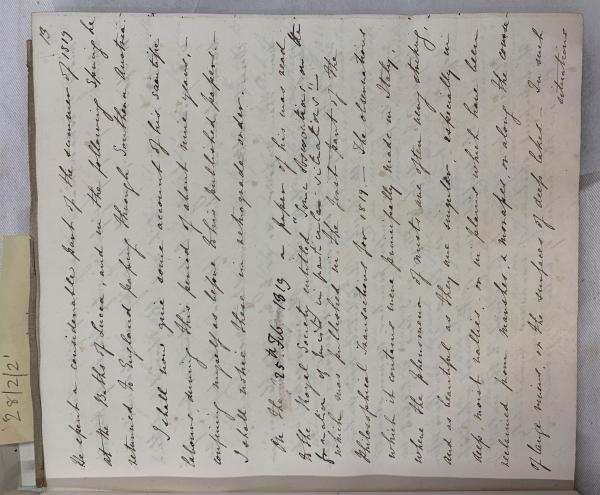 13
He spent a considerable part of the summer of 1819
at the Baths of Lucca; and in the following Spring he
returned to England passing through Southern Austria.
I shall now give some account of his scientific
labours during this period of about nine years,-
confining myself as before to his published papers.-
I shall notice them in retrograde order.
On the 25th Feb. 1819 a paper of his was read
to the Royal Society intitled Some observations on the
formation of mists in particular situations:-
which was published in the first part of the
Philosophical Transactions for 1819.- The observations
which it contains were principally made in Italy;
where the phenomena of mists are often very striking,
and as beautiful as they are singular; especially in
deep moist vallies, or in plains which have been
reclaimed from marshes, & morasses, or along the course
of large rivers, or the surfaces of deep lakes.- In such
situations
28/2/2'